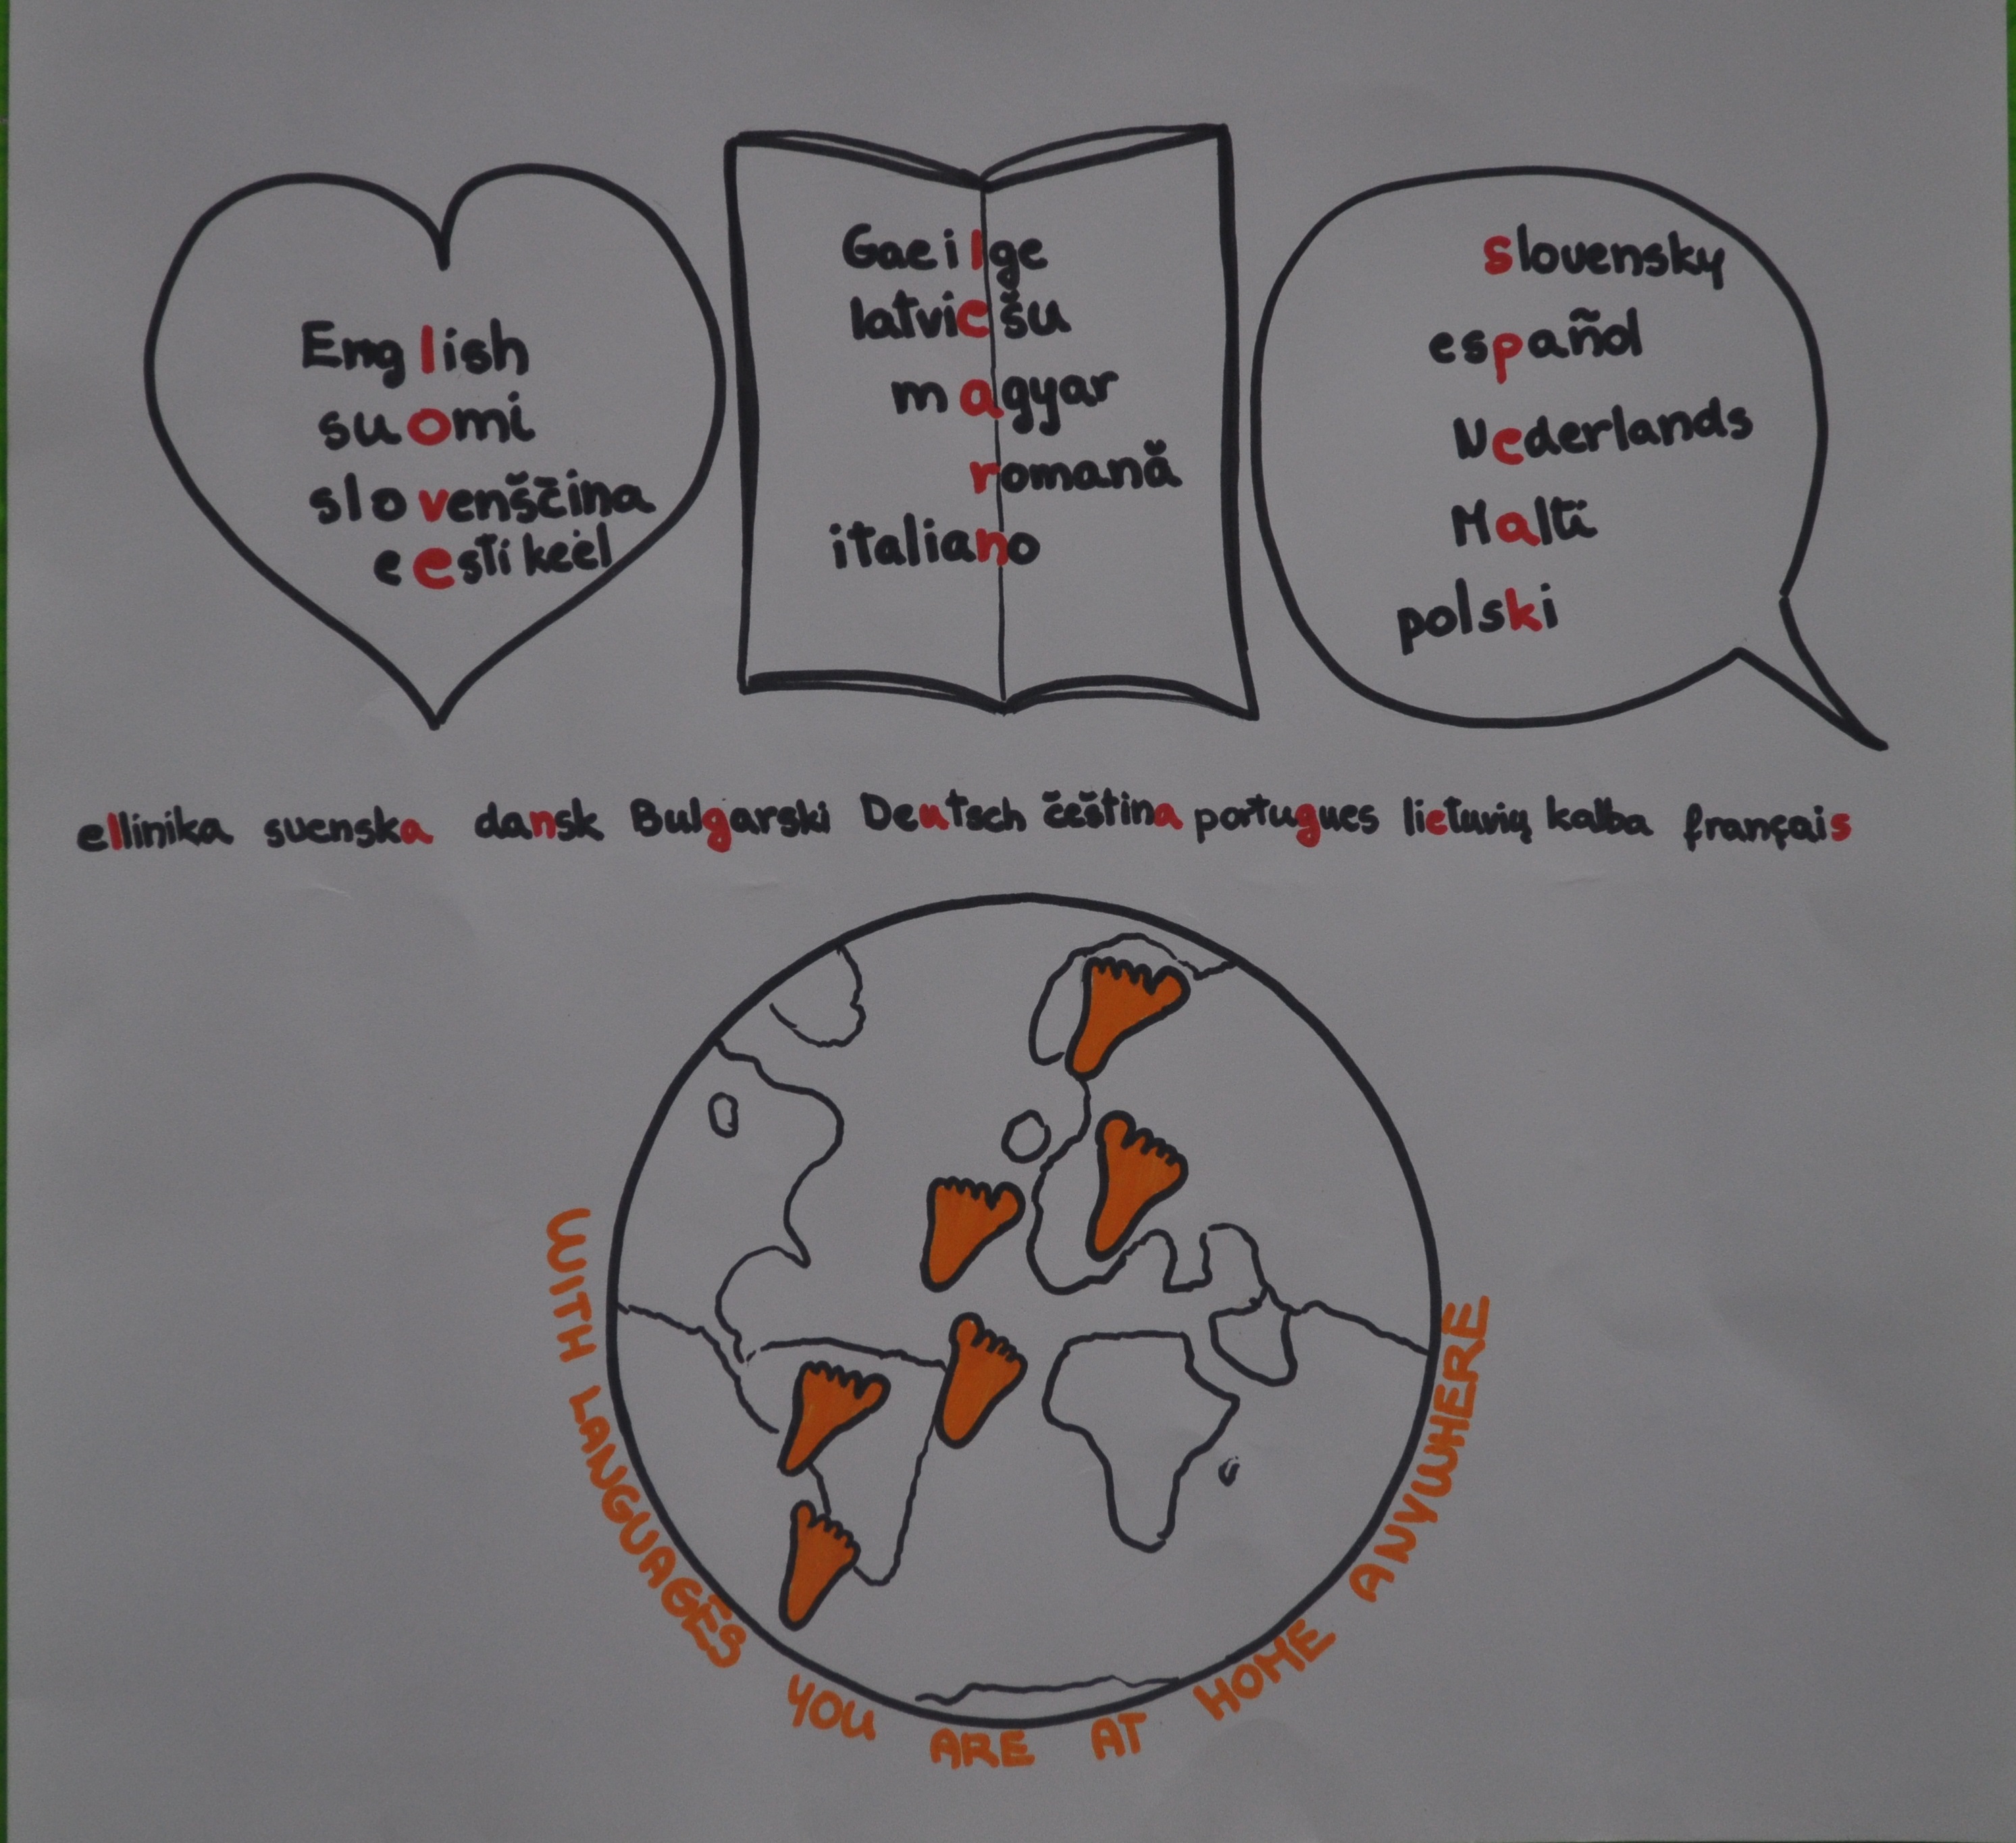 English
suomi
slovenščina
eesti keel
Gaeilge
latviešu
magyar
romană
italiano
slovensky
español
Nederlands
Malti
polski
ellinika svenska dansk Bulgarski Deutsch čeština portugues lietuvių kalba français
WITH LANGUAGES YOU ARE AT HOME ANYWHERE